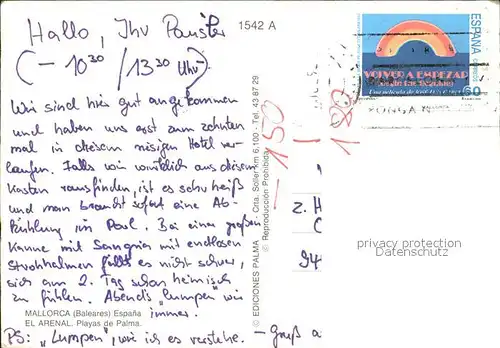 1542 A
Hallo, Ihr Panister
(- 10³⁰ / 13³⁰ Uhr)
Wir sind hier gut angekommen
und haben uns erst zum zehnten
mal in diesem riesigen Hotel ver-
laufen. Falls wir wirklich aus diesem
Kasten rausfinden, ist es sehr heiß
und man braucht sofort eine Ab-
kühlung im Pool. Bei einer großen
Kanne mit Sangria mit endlosen
Strohhalmen fällt es nicht schwer,
sich am 2. Tag schon heimisch
zu fühlen. Abends "Lumpen" wir
immer.
MALLORCA (Baleares) España
EL ARENAL. Playas de Palma.
PS: "Lumpen", wie ich es verstehe.
© EDICIONES PALMA - Crta. Soller km 6,100 - Tel. 43 87 29
© Reproducción Prohibida
ESPAÑA
VOLVER A EMPEZAR
60
- 150
180
z. H
C
94
privacy protection
watermark
- Gruß a